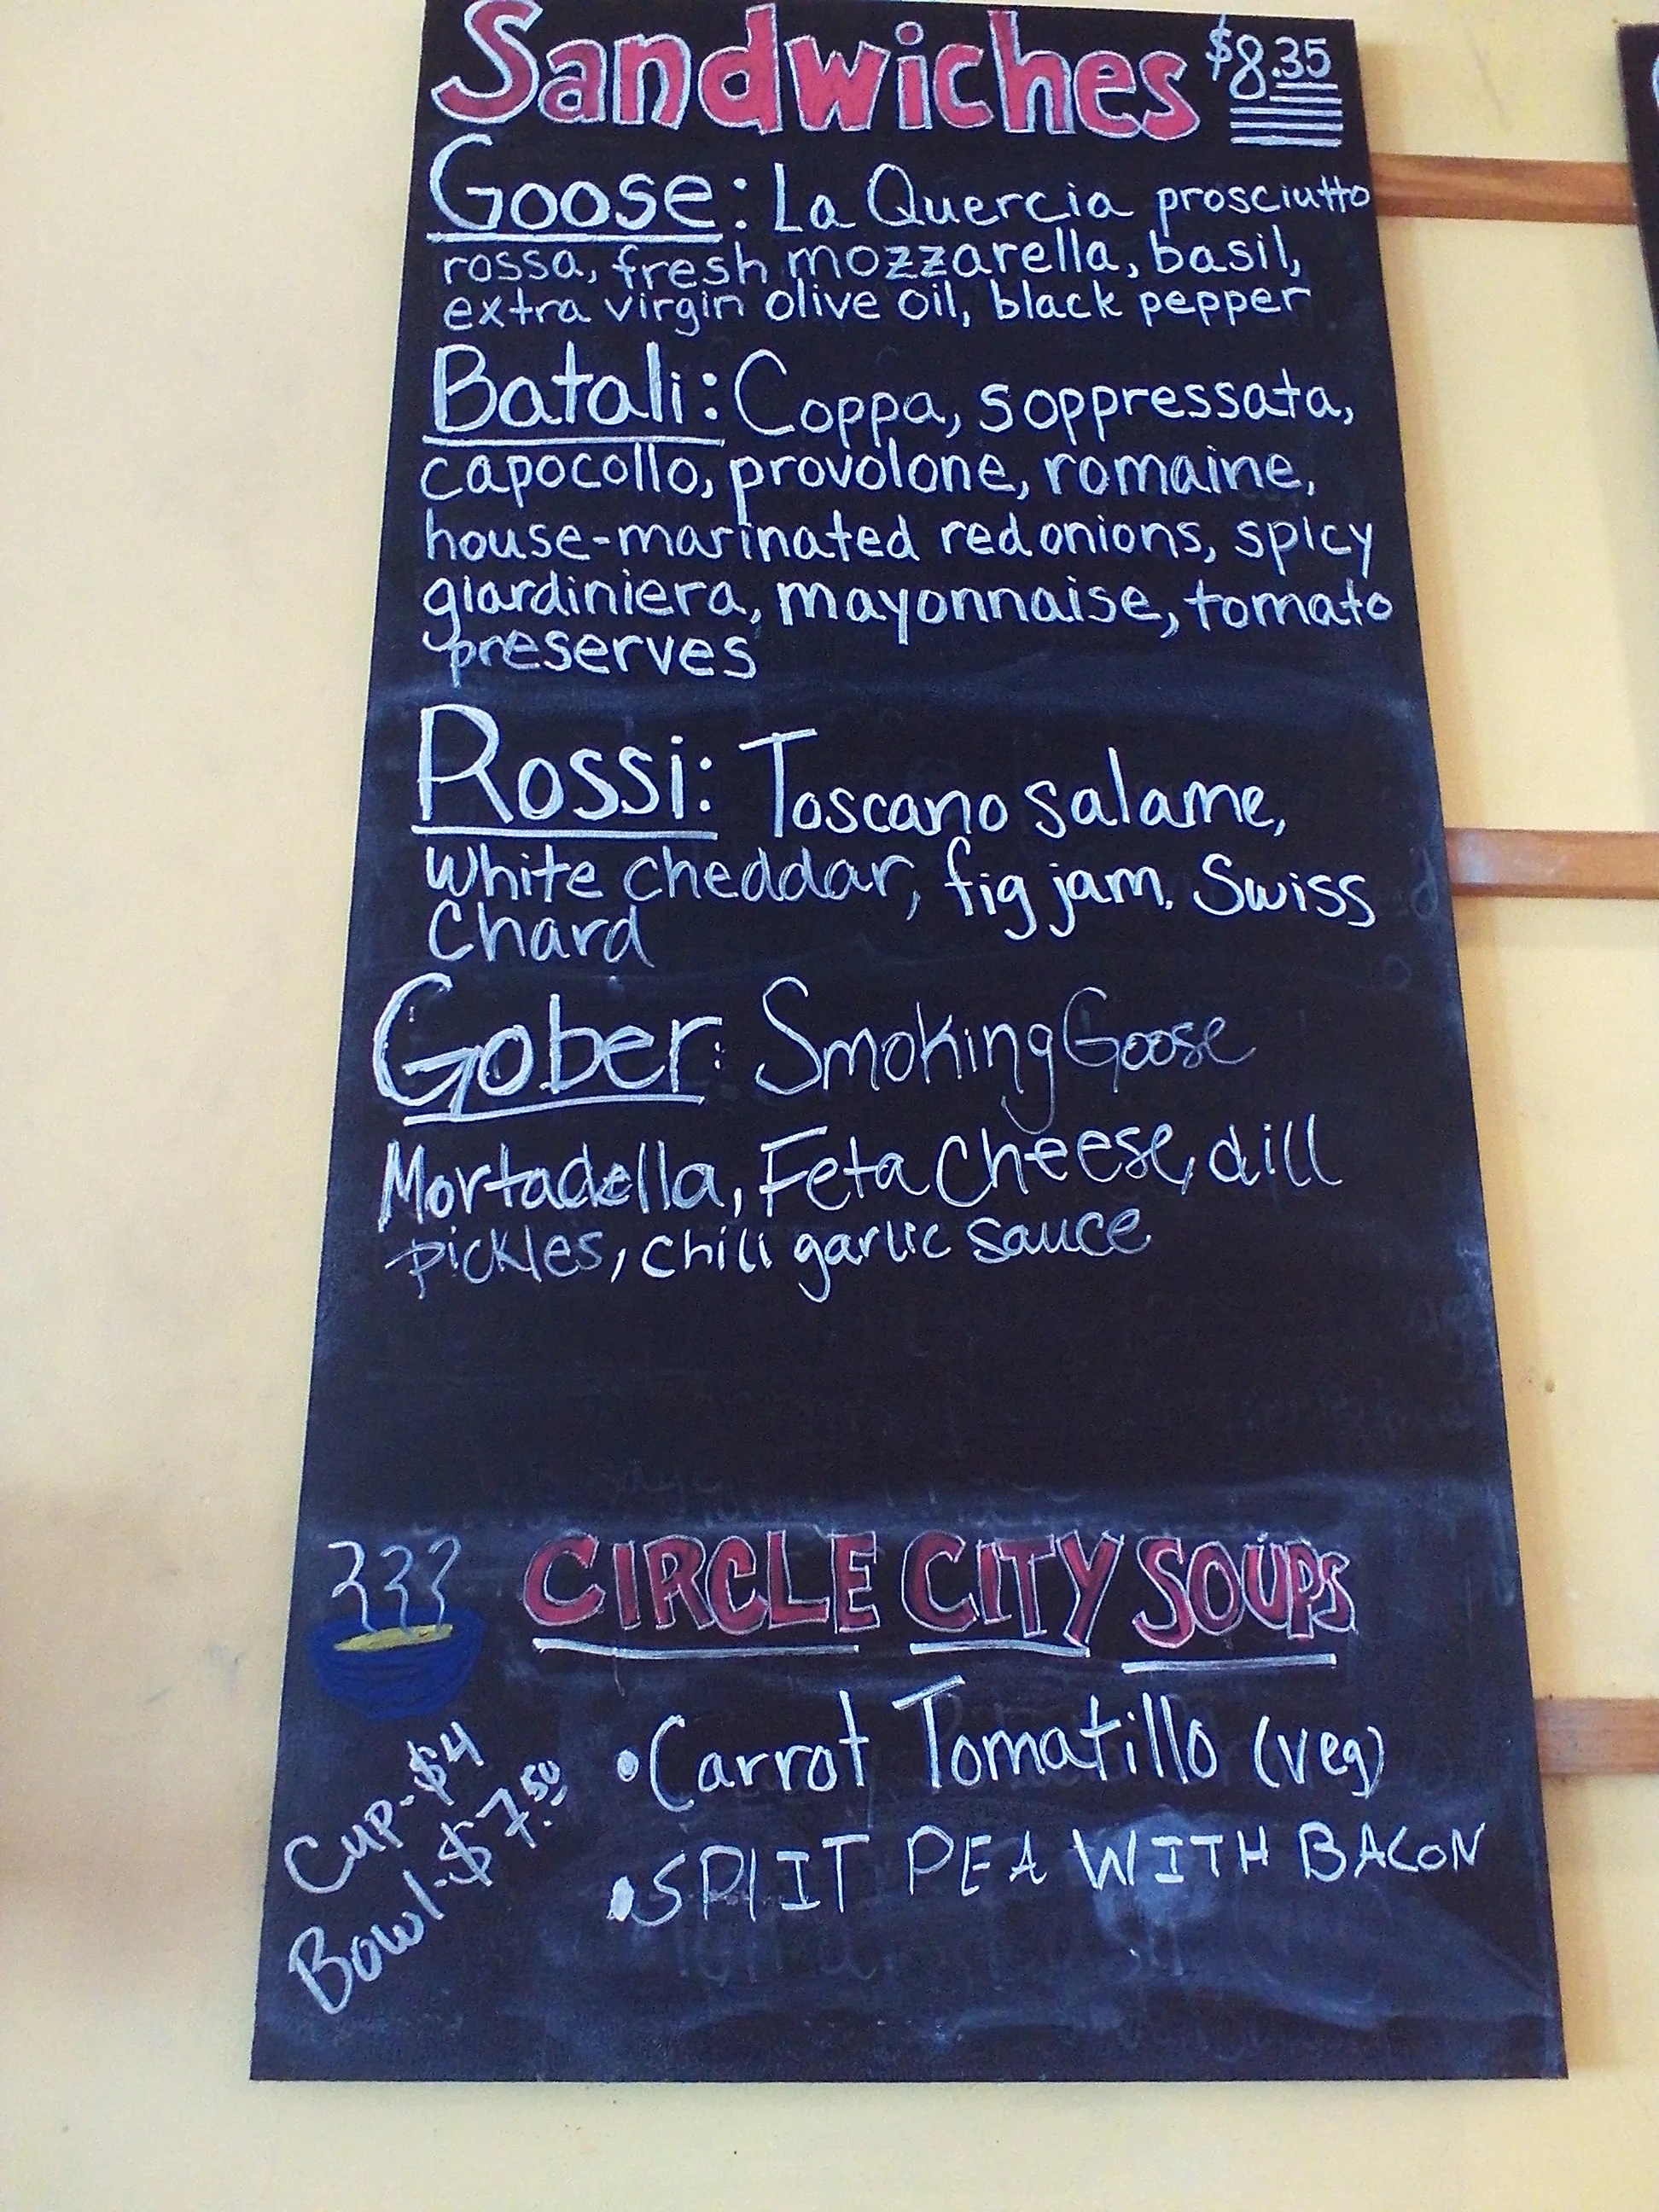 Sandwiches $8.35
Goose: La Quercia prosciutto
rossa, fresh mozzarella, basil,
extra virgin olive oil, black pepper
Batali: Coppa, soppressata,
capocollo, provolone, romaine,
house-marinated red onions, spicy
giardiniera, mayonnaise, tomato
preserves
Rossi: Toscano salame,
White cheddar, fig jam, Swiss
Chard
Gober: Smoking Goose
Mortadella, Feta Cheese, dill
pickles, chili garlic sauce
CIRCLE CITY SOUPS
Cup-$4
Bowl-$7.50
•Carrot Tomatillo (veg)
•SPLIT PEA WITH BACON